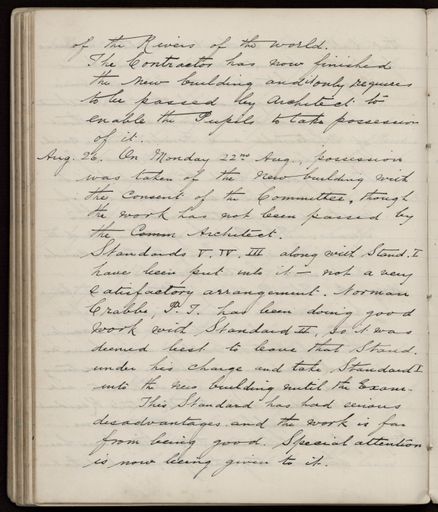 of the Rivers of the world.
The Contractor has now finished
the new building and it only requires
to be passed by Architect to
enable the Pupils to take possession
of it.
Aug. 26. On Monday 22nd Aug. possession
was taken of the new building with
the consent of the Committee, though
the work has not been passed by
the Comm Architect.
Standards V. IV. III along with Stand. I
have been put into it – not a very
satisfactory arrangement. Norman
Crabbe, P. T. has been doing good
work with Standard II, so it was
deemed best to leave that Stand.
under his charge and take Standard I
into the new building until the Exam.
This Standard has had serious
disadvantages and the work is far
from being good. Special attention
is now being given to it.